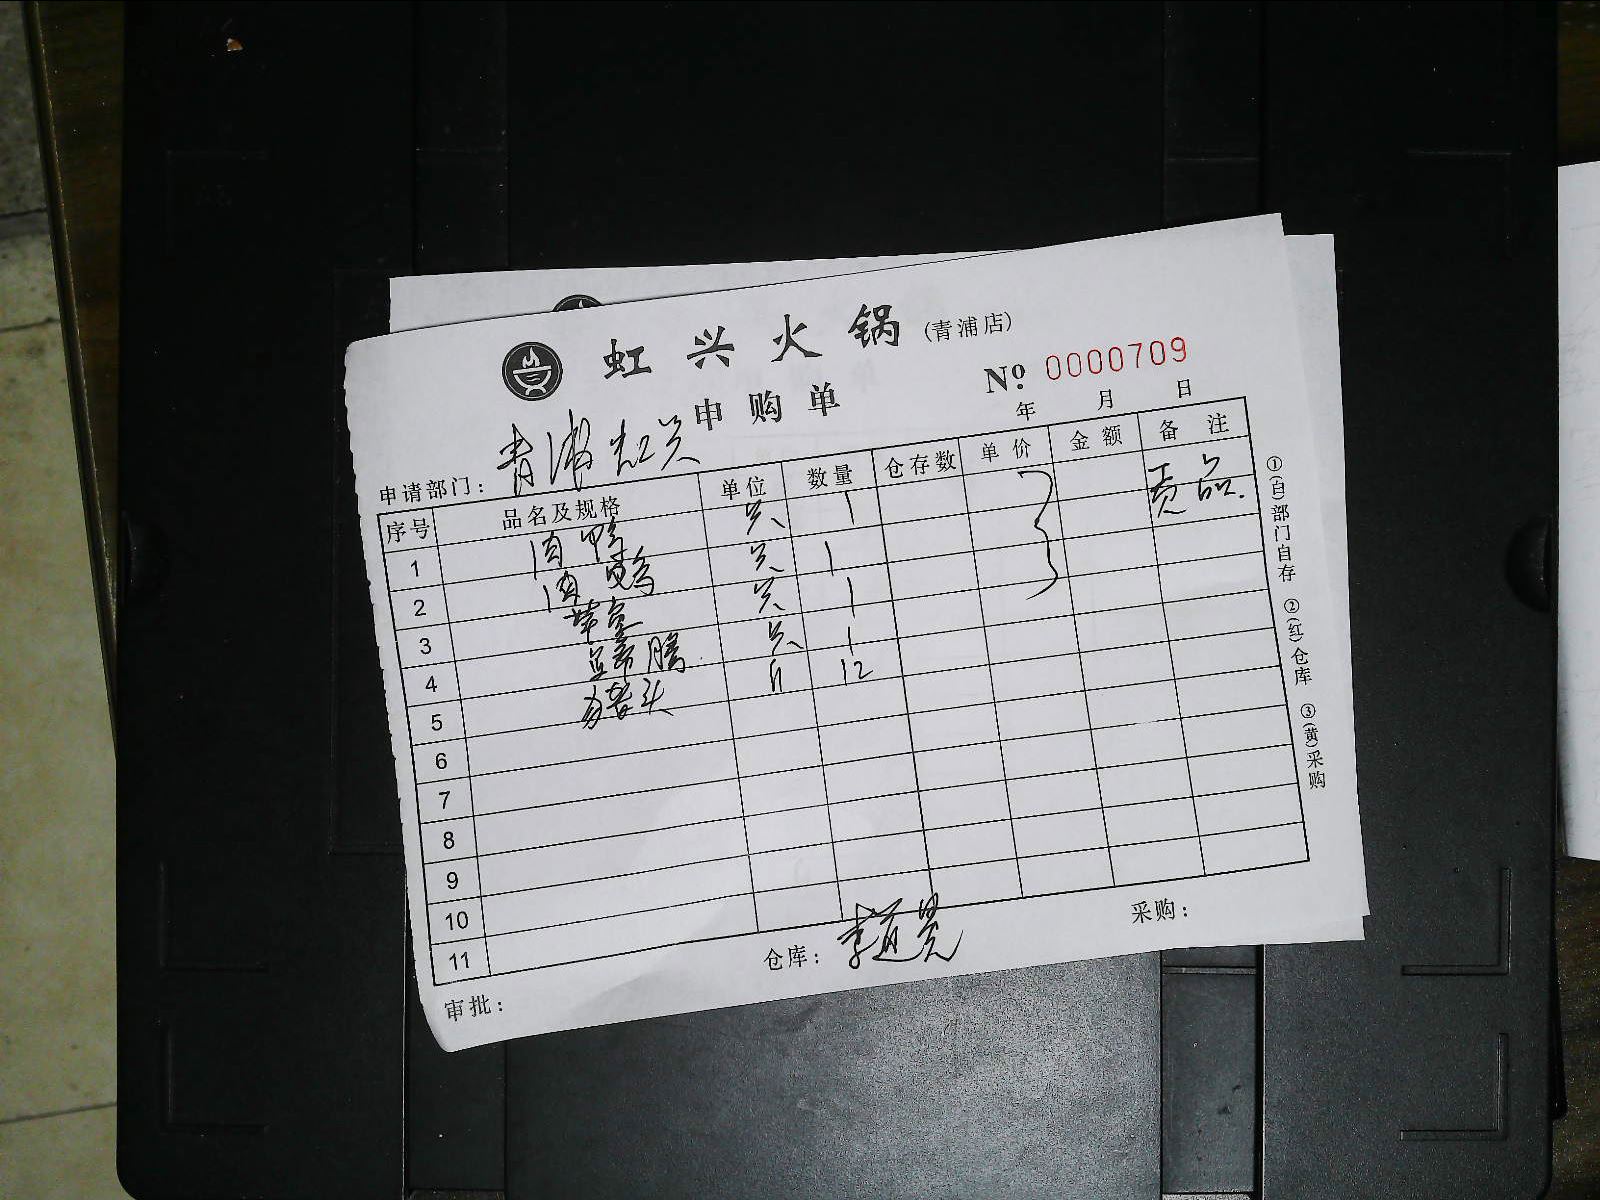 虹兴火锅(青浦店)
申购单
№ 0000709
年 月 日
申请部门：青浦虹兴
序号 品名及规格 单位 数量 仓存数 单价 金额 备注
1 肉鸭 只 1 贡品.
2 肉 只 1
3 只 1
4 只 1
5 头 斤 12
6
7
8
9
10
11
审批： 仓库：李道 采购：
①(白)部门自存 ②(红)仓库 ③(黄)采购